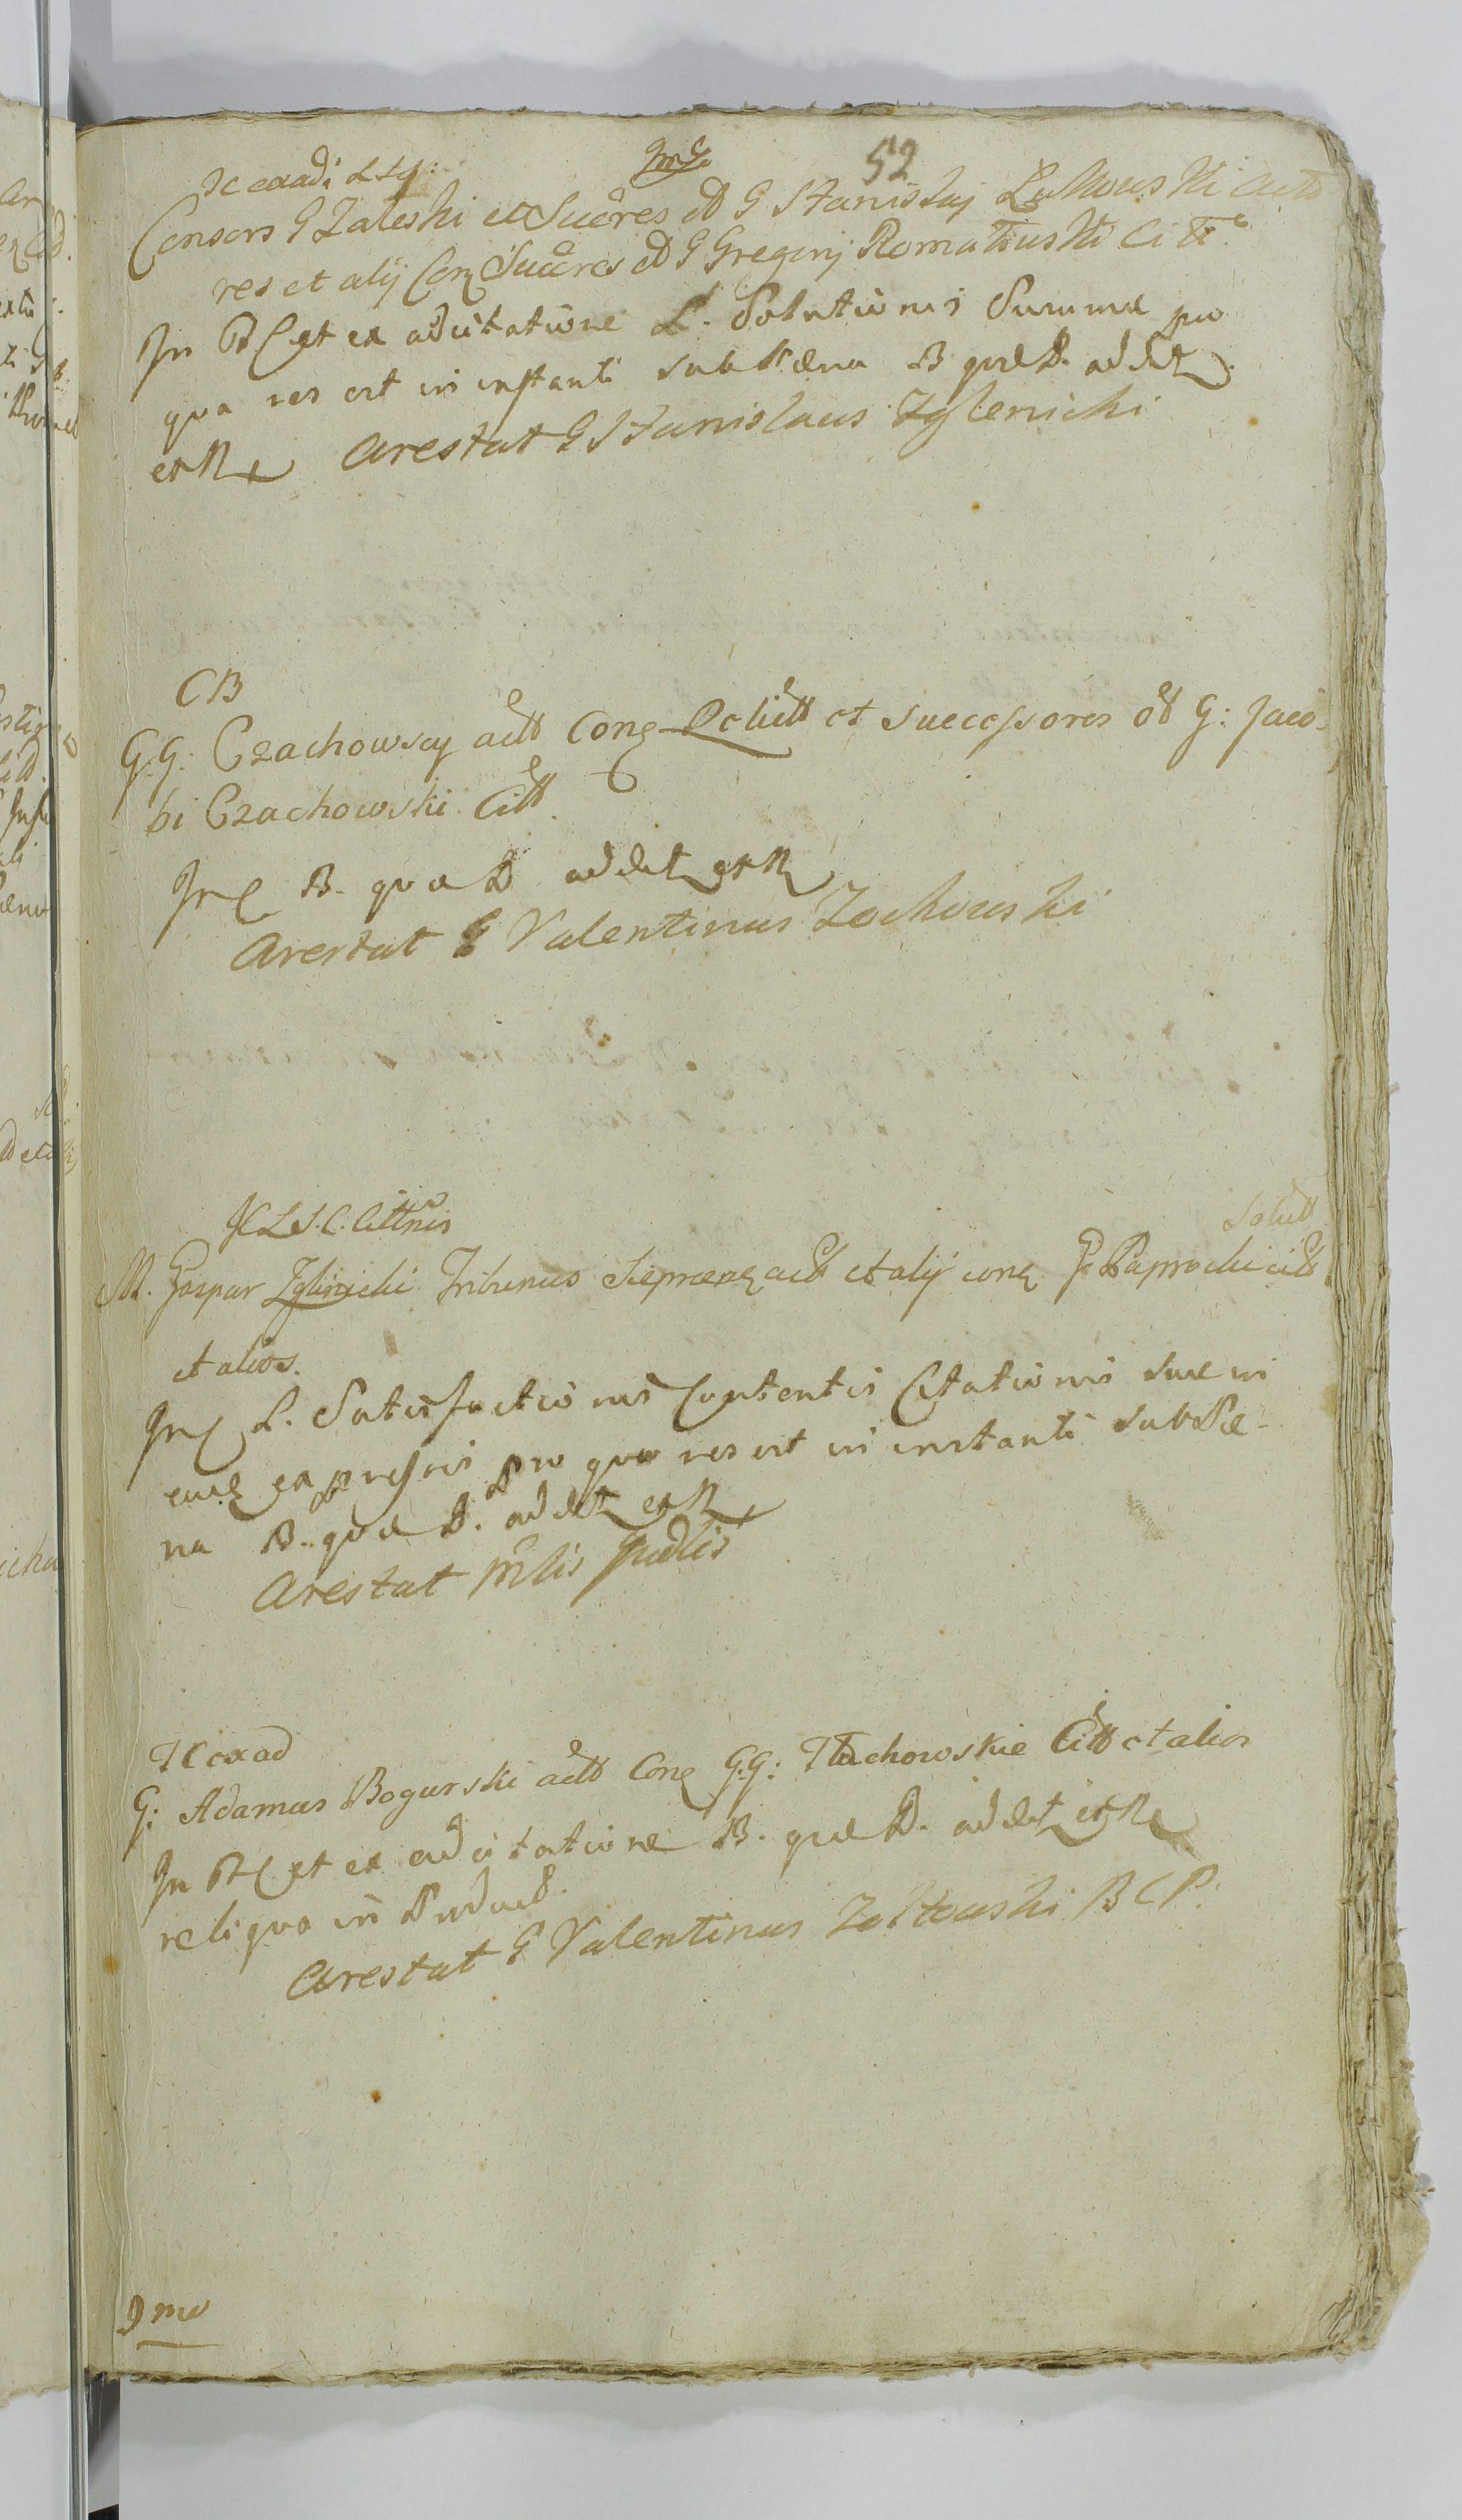 52
Consors G Zaleski et Succres od G Stanislaj Lutkowski Acto
res et alij Con Succres od G Gregorij Romatowski Citt
In et ex adcitatione L. Solutionis Summæ pro
qua res est in instanti sub Pæna B quæ D. addet
et R Arestat G Stanislaus Zglenicki
CB
G.G. Czachowscy actt Con et successores od G: Jaco-
bi Czachowski Citt.
In B. quæ D addet et R
Arestat G Valentinus Zochowski
L.S.C. Cittnis
Solutt
M. Gaspar Zglinicki Tribunus Sieprcen actt et alij con G. Paprocki citt
et alios.
In L. Satisfactionis Contentis Citationis suæ in
eaq expressis Pro qua res est in instanti sub Pæ-
na B. quæ D. addet et R
Arestat Mlis Judlis
TC ex ad
G: Adamus Bogurski actt Con G.G: Tlachowskie Citt et alios
In et ex adcitatione B. quæ D. addet et R
reliqua in
Arestat G Valentinus Zoltowski B C P.
9 mo